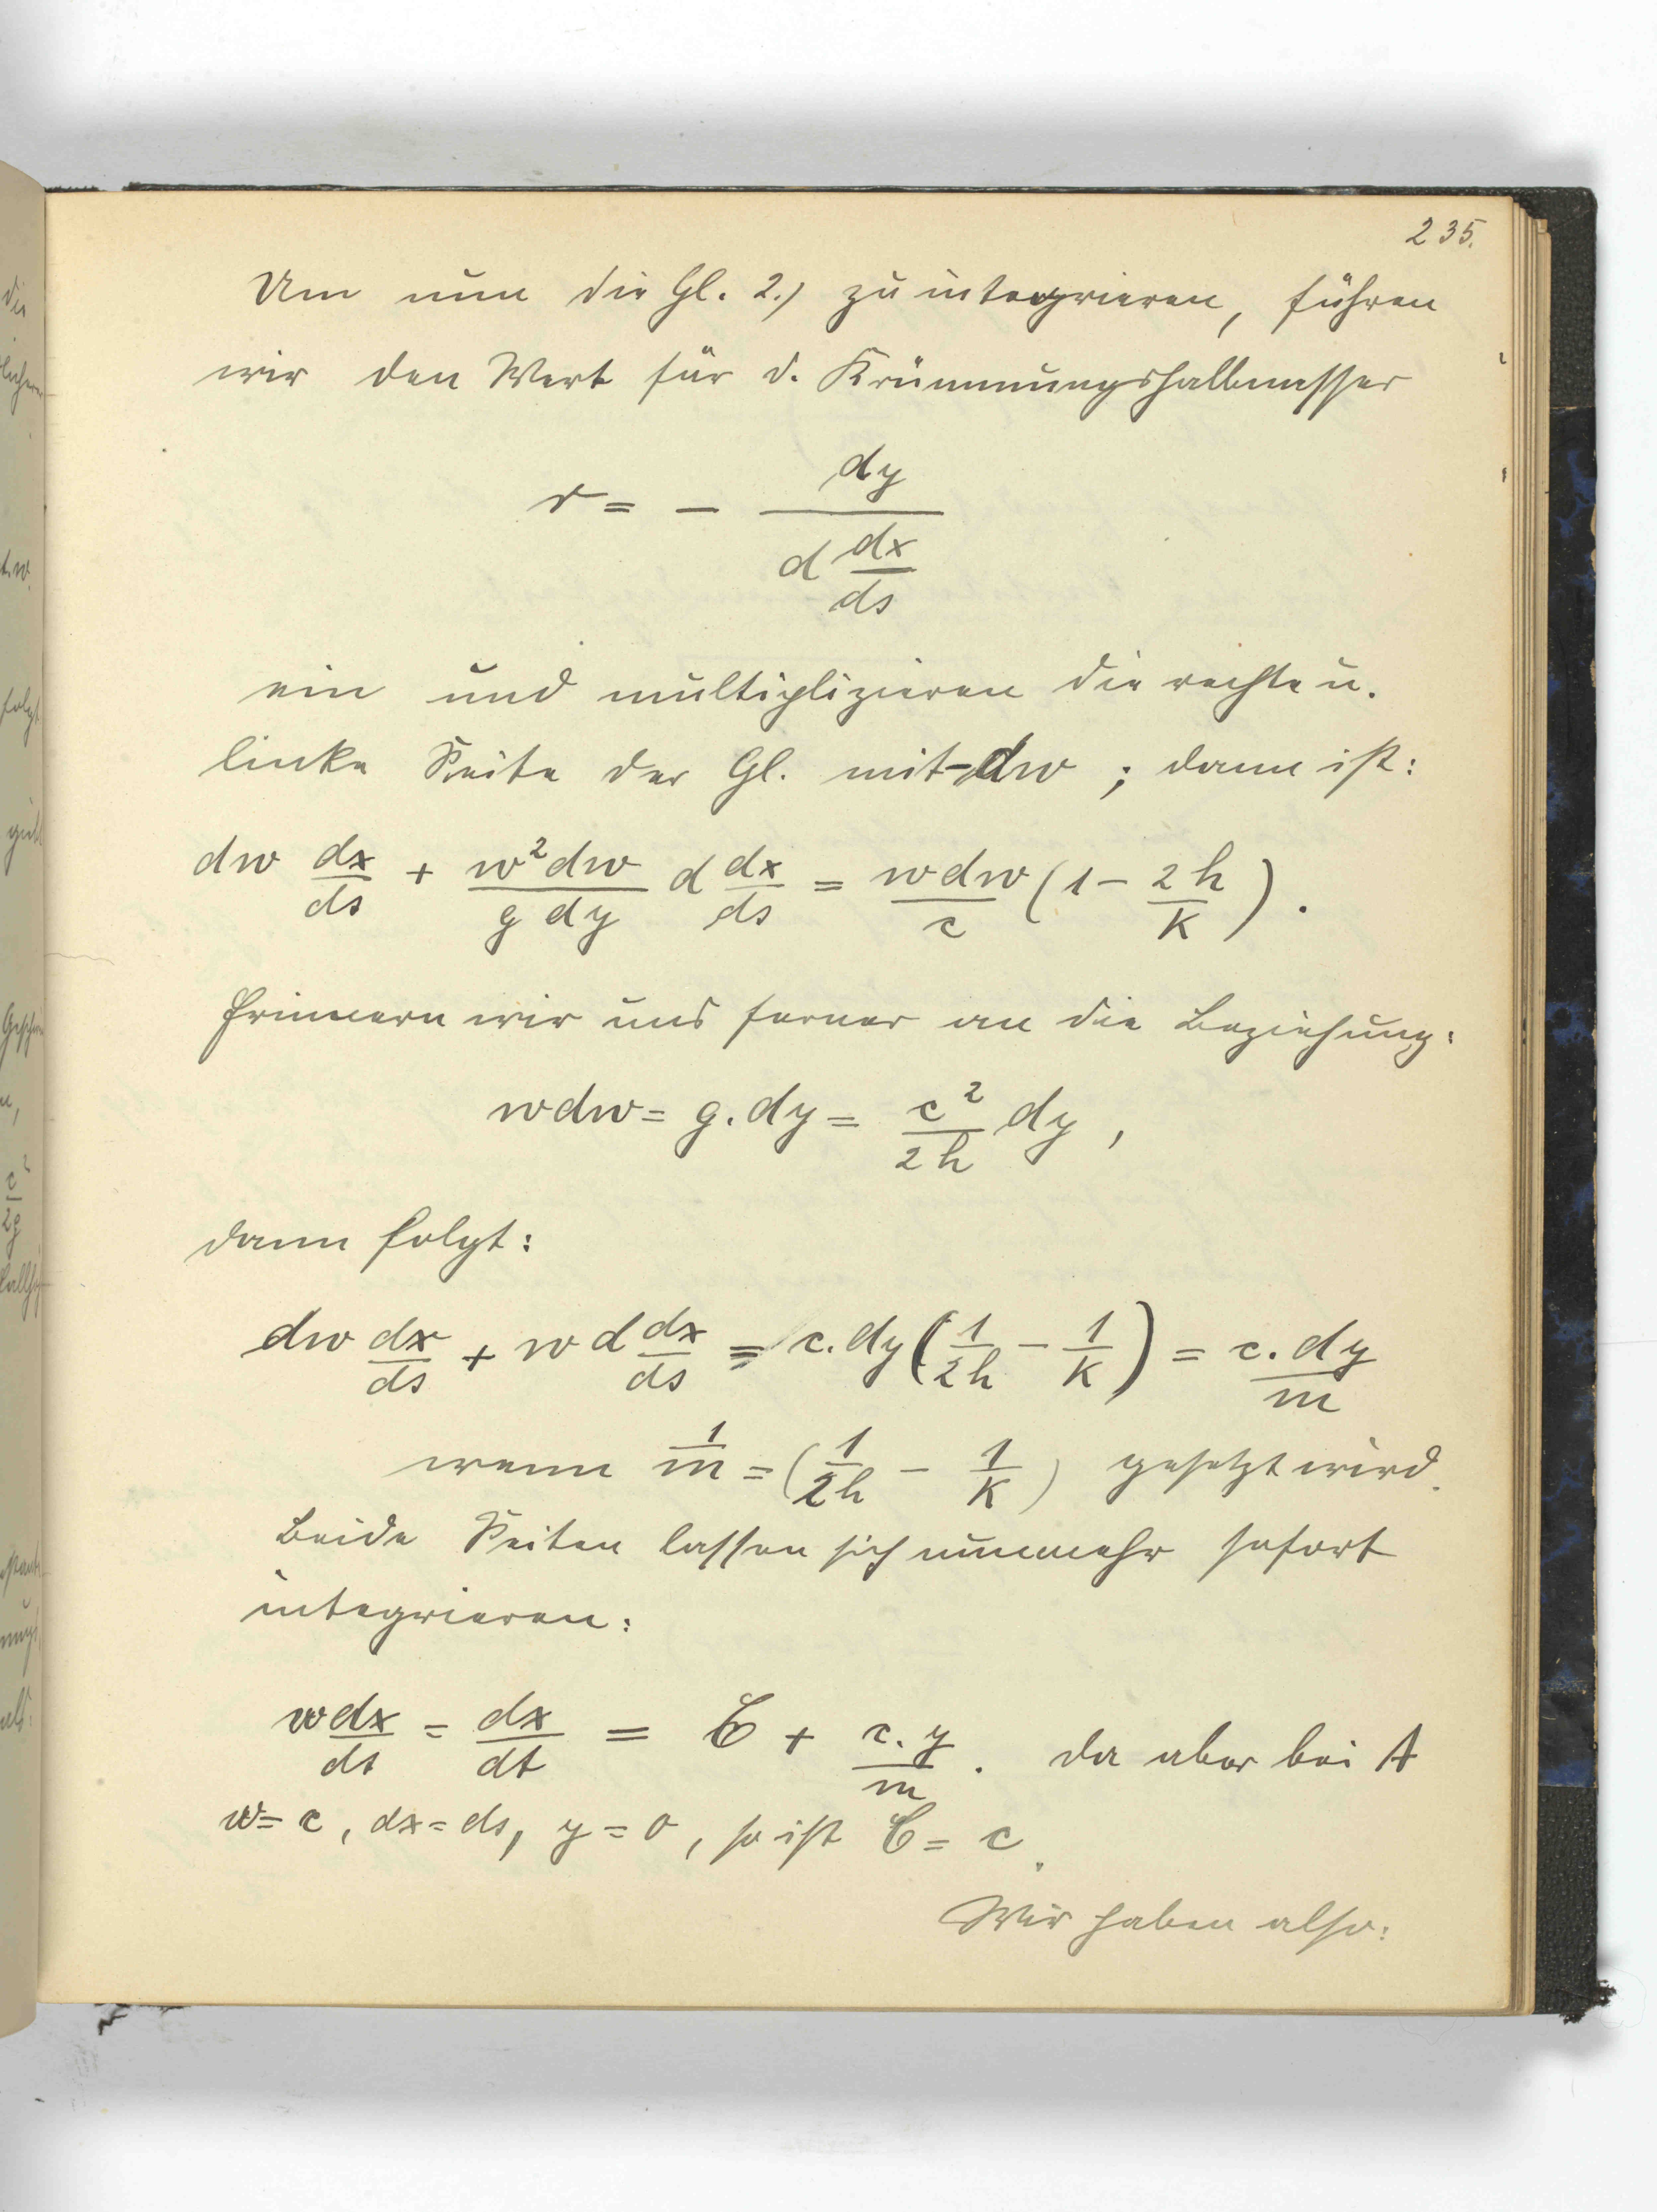 235.
Um nun die Gl. 2.) zu integrieren, führen
wir den Wert für d. Krümmungshalbmesser
r = - dy / (d dx/ds)
ein und multiplizieren die rechte u.
linke Seite der Gl. mit - dw ; dann ist:
dw dx/ds + w² dw/(g dy) d dx/ds = w dw/c (1 - 2h/k).
Erinnern wir uns ferner an die Beziehung:
w dw = g. dy = c²/2h dy,
dann folgt:
dw dx/ds + w d dx/ds = c. dy (1/2h - 1/k) = c. dy/m
wenn 1/m = (1/2h - 1/k) gesetzt wird.
Beide Seiten lassen sich nunmehr sofort
integrieren:
w dx/ds = dx/dt = C + c. y/m. da aber bei A
w = c, dx = ds, y = 0, so ist C = c.
Wir haben also: